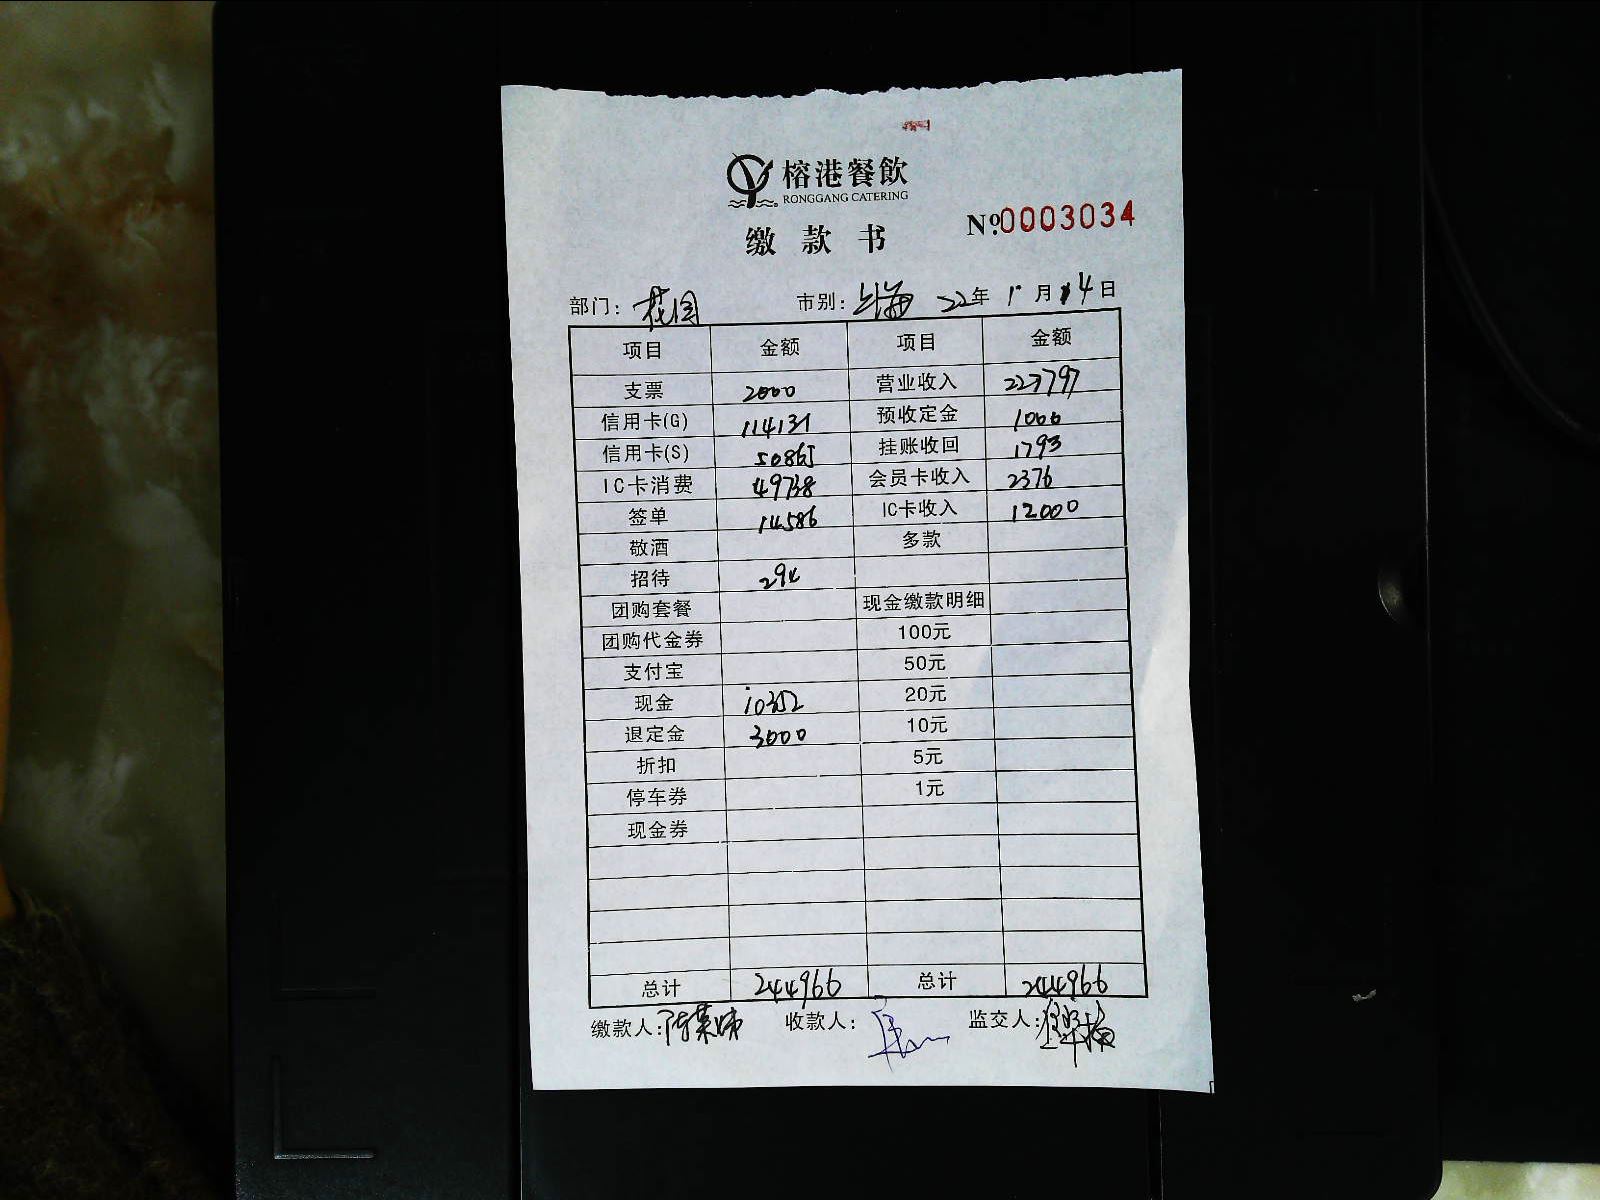 榕港餐飲
RONGGANG CATERING
缴款书
Nº:0003034
部门：花园 市别：上海 22年 1月 14日
项目 金额 项目 金额
支票 2000 营业收入 227797
信用卡(G) 114131 预收定金 1000
信用卡(S) 50865 挂账收回 1793
IC卡消费 49738 会员卡收入 2376
签单 14586 IC卡收入 12000
敬酒 多款
招待 294
团购套餐 现金缴款明细
团购代金券 100元
支付宝 50元
现金 10352 20元
退定金 3000 10元
折扣 5元
停车券 1元
现金券
总计 244966 总计 244966
缴款人： 收款人： 监交人：